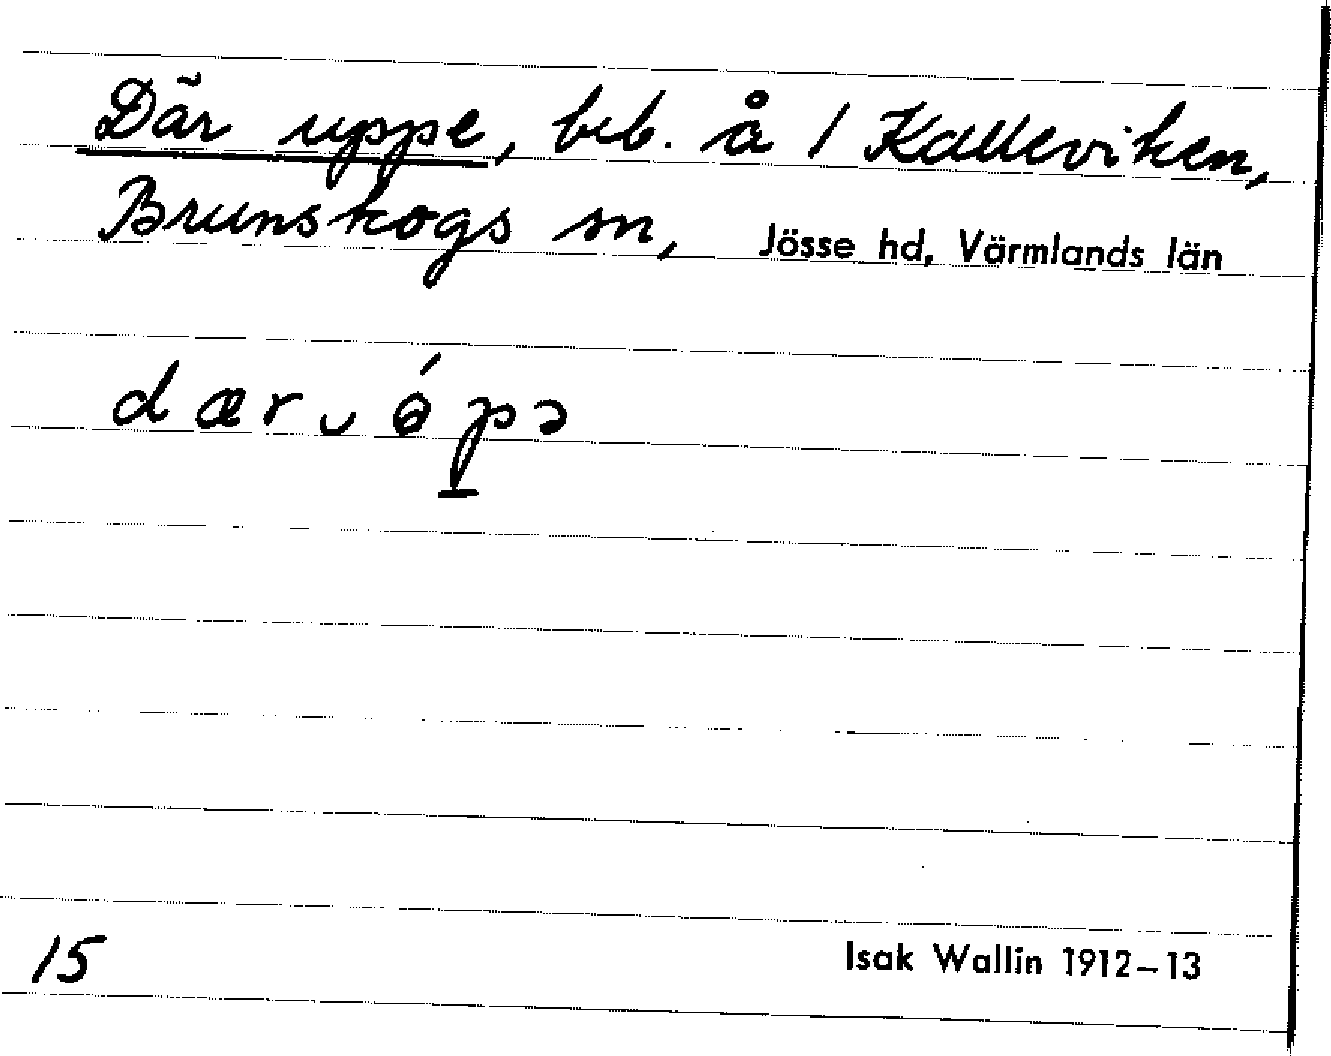 Där uppe, beb. å 1 Kalleviken,
Brunskogs sn, Jösse hd, Värmlands län
dær ᴗ ɵ́pə
15
Isak Wallin 1912–13